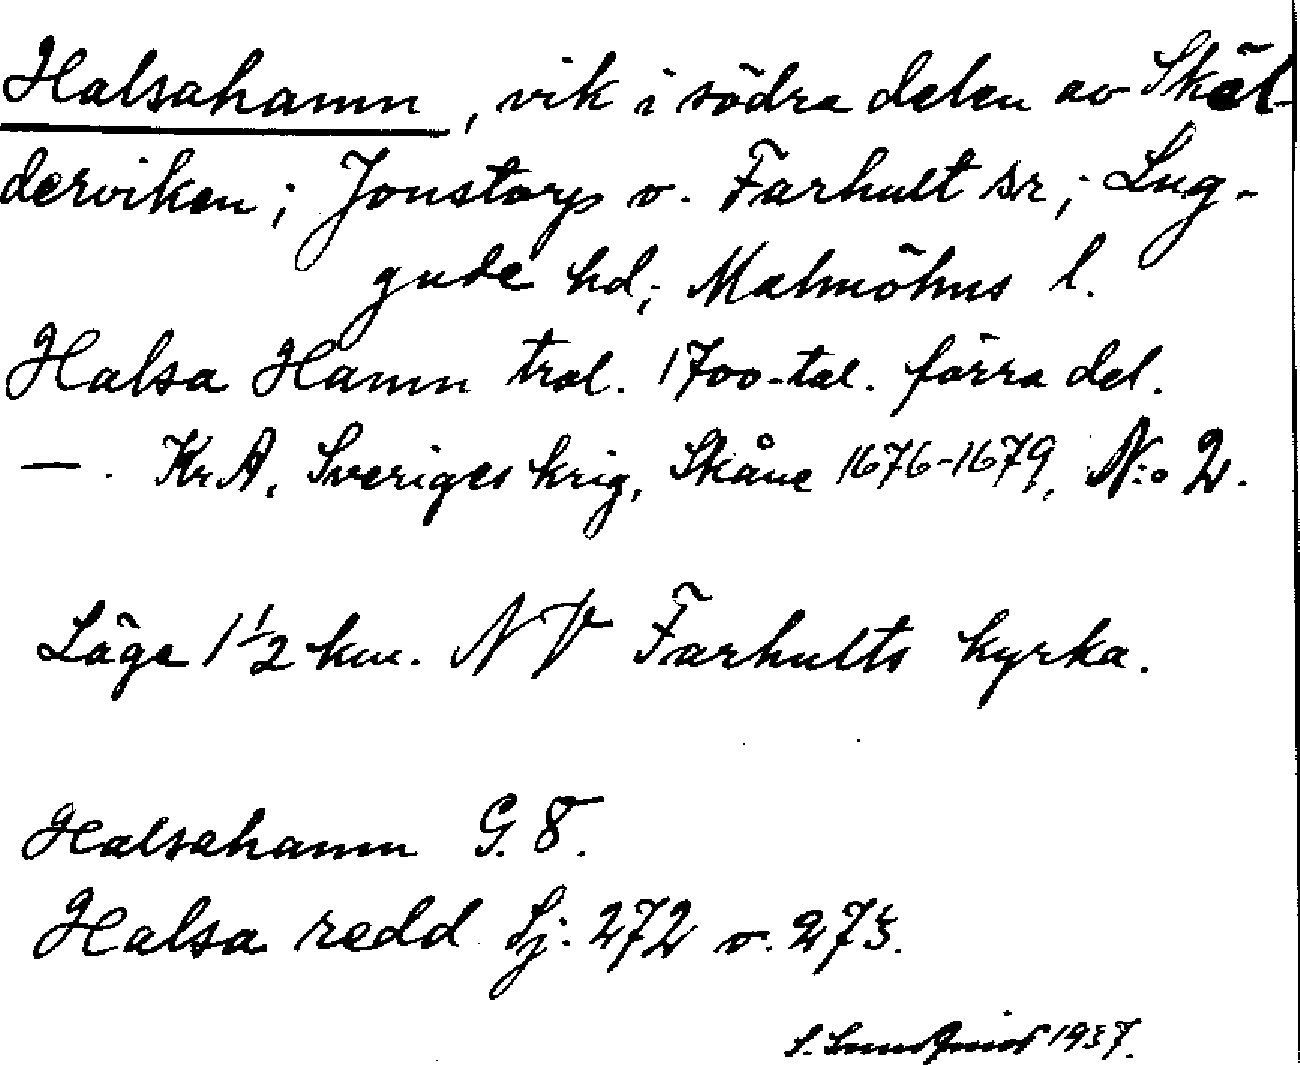 Halsahamn, vik i södra delen av Skäl-
derviken; Jonstorp o. Farhult sn; Lug-
gude hd; Malmöhus l.
Halsa Hamn trol. 1700-tal. förra del.
— . Kr.A. Sveriges krig, Skåne 1676-1679, N:o 2.
Läge 1 1/2 km. NV Farhults kyrka.
Halsahamn G. 8.
Halsa redd Sj. 272 o. 273.
S. 1937.